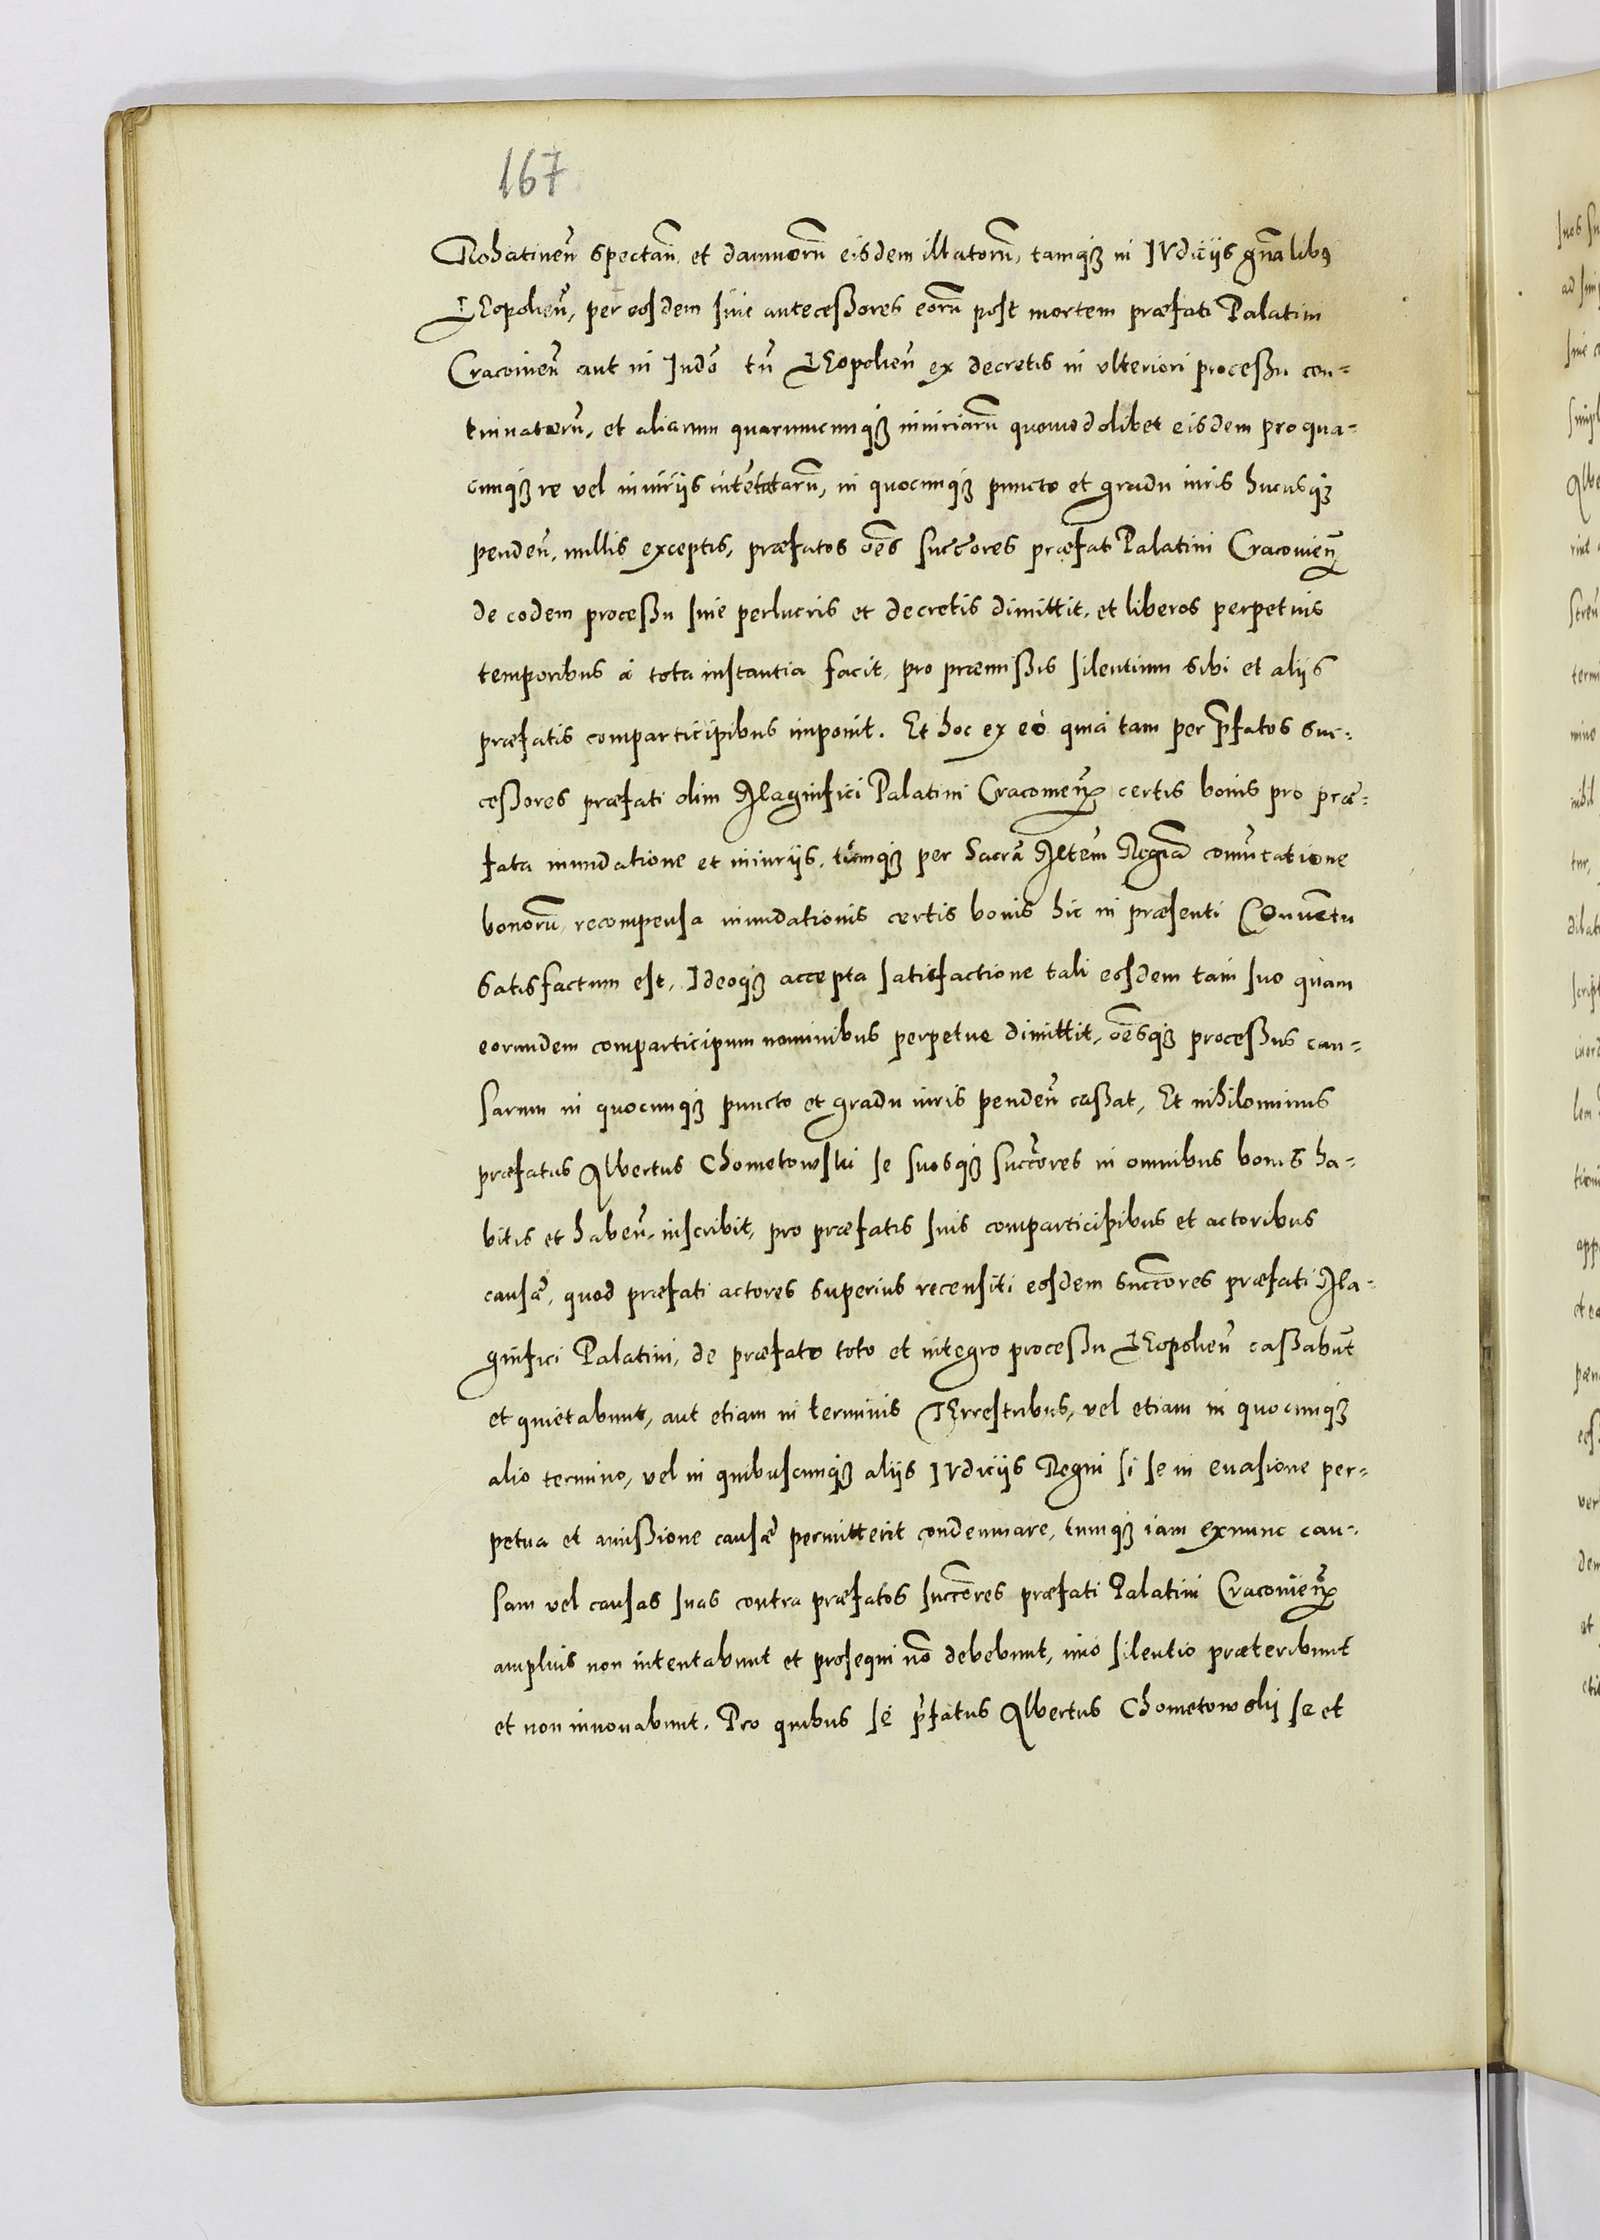 167
Rohatinen̄ spectan̄ et damnorū eisdem illatorū, tamq̨ꝫ in IVdiciis gn̄alibꝰ
LEopolien̄, per eosdem siue antecessores eorū post mortem præfati Palatini
Cracovien̄ aut in Iudō tn̄ LEopolien̄ ex decretis in vlteriori processu con=
tinuatorū, et aliarum quarumcunqꝫ iniuriarū quomodolibet eisdem pro qua=
cunqꝫ re vel iniuriis intentatarū, in quocunqꝫ puncto et gradu iuris hucusqꝫ
penden̄, nullis exceptis, præfatos oēs succ̄ores præfat Palatini Cracouien̄
de eodem processu siue perlucris et decretis dimittit, et liberos perpetuis
temporibus à tota instantia facit, pro præmissis silentium sibi et aliis
præfatis comparticipibus imponit. Et hoc ex eò quia tam per p̄fatos suc=
cessores præfati olim Magnifici Palatini Cracouien̄ certis bonis pro præ=
fata inundatione et iniuriis, tùmqꝫ per Sacrā Mtem̄ Regiā com̄utatione
bonorū, recompensa inundationis certis bonis hic in præsenti COnuentu
satisfactum est, Ideoqꝫ accepta satisfactione tali eosdem tam suo quam
eorundem comparticipum nominibus perpetue dimittit, oēsqꝫ processus cau=
sarum in quocunqꝫ puncto et gradu iuris penden̄ cassat, Et nihilominus
præfatus Albertus Chometowski se suosqꝫ succ̄ores in omnibus bonis ha=
bitis et haben̄ inscribit, pro præfatis suis comparticipibus et actoribus
causæ, quod præfati actores superius recensiti eosdem succ̄ores præfati Ma=
gnifici Palatini, de præfato toto et integro processu LEopolien̄ cassabūt
et quietabunt, aut etiam in terminis TErrestribus, vel etiam in quocunqꝫ
alio termino, vel in quibuscunqꝫ aliis IVdiciis Regni si se in euasione per=
petua et amissione causæ permitterit condemnare, tumqꝫ iam exnunc cau=
sam vel causas suas contra præfatos succ̄ores præfati Palatini Cracouien̄
amplius non intentabunt et prosequi nō debebunt, imò silentio præteribunt
et non innouabunt. Pro quibus se p̄fatus Albertus Chometowskij se et